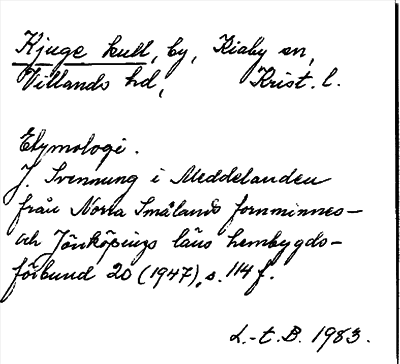 Kjuge kull, by, Kiaby sn,
Villands hd, Krist. l.
Etymologi.
J. Svennung i Meddelanden
från Norra Smålands fornminnes-
och Jönköpings läns hembygds-
förbund 20 (1947), s. 114 f.
L.-t. B. 1983.